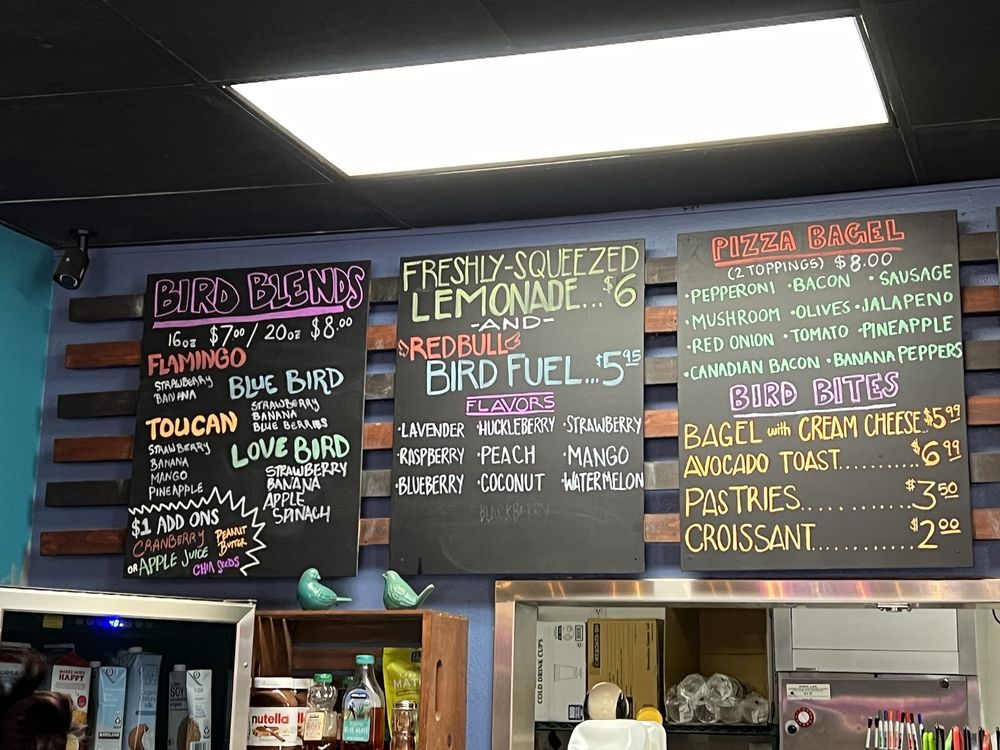 BIRD BLENDS
16oz $7.00 / 20oz $8.00
FLAMINGO
STRAWBERRY
BANANA
BLUE BIRD
STRAWBERRY
BANANA
BLUE BERRIES
TOUCAN
STRAWBERRY
BANANA
MANGO
PINEAPPLE
LOVE BIRD
STRAWBERRY
BANANA
APPLE
SPINACH
$1 ADD ONS
CRANBERRY
OR APPLE JUICE
PEANUT
BUTTER
CHIA SEEDS
FRESHLY-SQUEEZED
LEMONADE...$6
-AND-
REDBULL
BIRD FUEL...$5.95
FLAVORS
•LAVENDER •HUCKLEBERRY •STRAWBERRY
•RASPBERRY •PEACH •MANGO
•BLUEBERRY •COCONUT •WATERMELON
BLACKBERRY
PIZZA BAGEL
(2 TOPPINGS) $8.00
•PEPPERONI •BACON •SAUSAGE
•MUSHROOM •OLIVES •JALAPENO
•RED ONION •TOMATO •PINEAPPLE
•CANADIAN BACON •BANANA PEPPERS
BIRD BITES
BAGEL with CREAM CHEESE.$5.99
AVOCADO TOAST..........$6.99
PASTRIES............$3.50
CROISSANT............$2.00
HAPPY
SOY
nutella
MAT
COLD DRINK CUPS